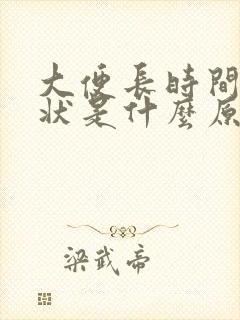 大便長時間
狀是什麼原
梁武帝